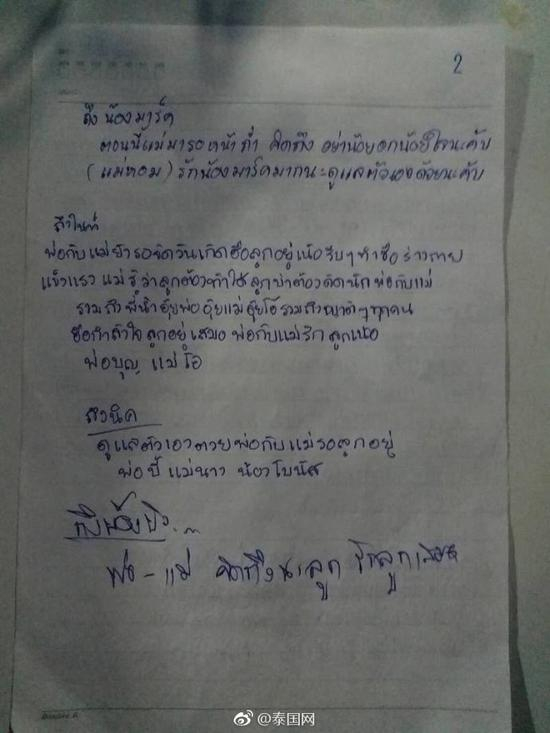 2
ถึง น้องมาร์ค
ตอนนี้แม่มารอหน้าถ้ำ คิดถึง อย่าน้อยอกน้อยใจนะครับ
(แม่หอม) รักน้องมาร์คมากนะดูแลตัวเองด้วยนะครับ
ถึงไนท์
พ่อกับแม่ยังรอจัดวันเกิดลูกอยู่เน้อรีบๆทำร่างกาย
แข็งแรง แม่รู้ว่าลูกต้องทำได้ลูกบ่าต้องคิดนักพ่อกับแม่
รวมถึงอุ้ยพ่ออุ้ยแม่อุ้ยโอ้รวมถึงญาติๆทุกคน
กำลังใจลูกอยู่เสมอ พ่อกับแม่รักลูกเน้อ
พ่อบุญ แม่
ถึงนิค
ดูแลตัวเองตวยพ่อกับแม่รอลูกอยู่
พ่อ แม่นาง น้องโบนัส
ถึงน้อง
พ่อ - แม่ คิดถึงนะลูก รักลูก
@泰国网